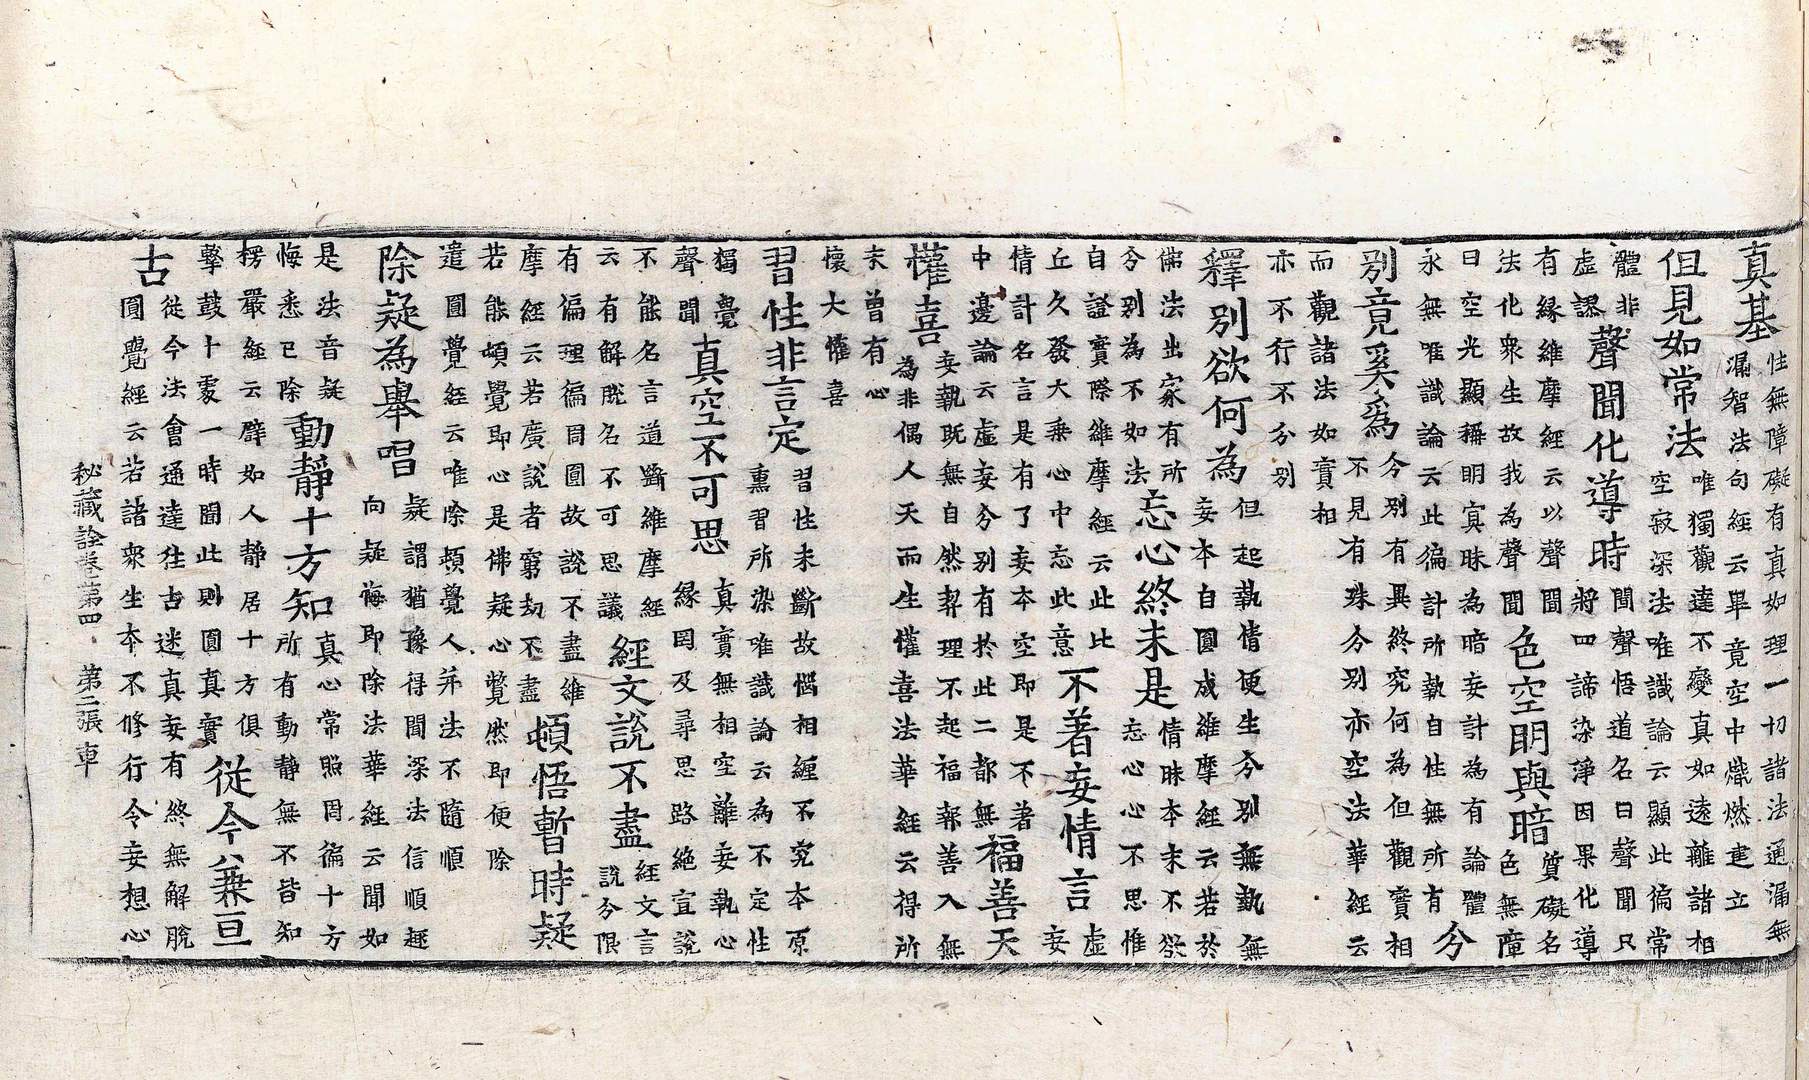 真基性無障礙有真如理一切諸法通漏無漏智法句經云畢竟空中熾燃建立
但見如常法唯獨觀達不變真如遠離諸相空寂深法唯識論云顯此徧常
體非虛謬聲聞化導時聞聲悟道名曰聲聞只將四諦染淨因果化導
有緣維摩經云以聲聞法化衆生故我為聲聞色空明與暗質礙名色無障
曰空光顯稱明寘昧為暗妄計為有論體永無唯識論云此徧計所執自性無所有分
別竟奚為分別有異終究何為但觀實相不見有殊分別亦空法華經云
而觀諸法如實相亦不行不分別
釋別欲何為但起執情便生分別無執無妄本自圓成維摩經云若於
佛法出家有所分別為不如法忘心終未是情昧本末不欲忘心心不思惟
自證實際維摩經云此比丘久發大乘心中忘此意不著妄情言虛妄
情計名言是有了妄本空即是不著中邊論云虛妄分別有於此二都無福善天
懽喜妄執既無自然契理不起福報善入無為非偶人天而生懽喜法華經云得所
未曾有心懷大懽喜
習性非言定習性未斷故惱相纏不究本原熏習所染唯識論云為不定性
獨覺聲聞真空不可思真實無相空離妄執心緣罔及尋思路絶宣說
不能名言道斷維摩經云有解脫名不可思議經文說不盡經文言說分限
有偏理徧周圓故說不盡維摩經云若廣說者窮劫不盡頓悟暫時疑
若能頓覺即心是佛疑心瞥然即便除遣圓覺經云唯除頓覺人并法不隨順
除疑為舉唱疑謂猶豫得聞深法信順趣向疑悔即除法華經云聞如
是法音疑悔悉已除動靜十方知真心常照周徧十方所有動靜無不皆知
楞嚴經云譬如人靜居十方俱擊鼓十處一時聞此則圓真實從今兼亘
古從今法會通達往古迷真妄有終無解脫圓覺經云若諸衆生本不修行今妄想心
秘藏詮卷第四 第二張車